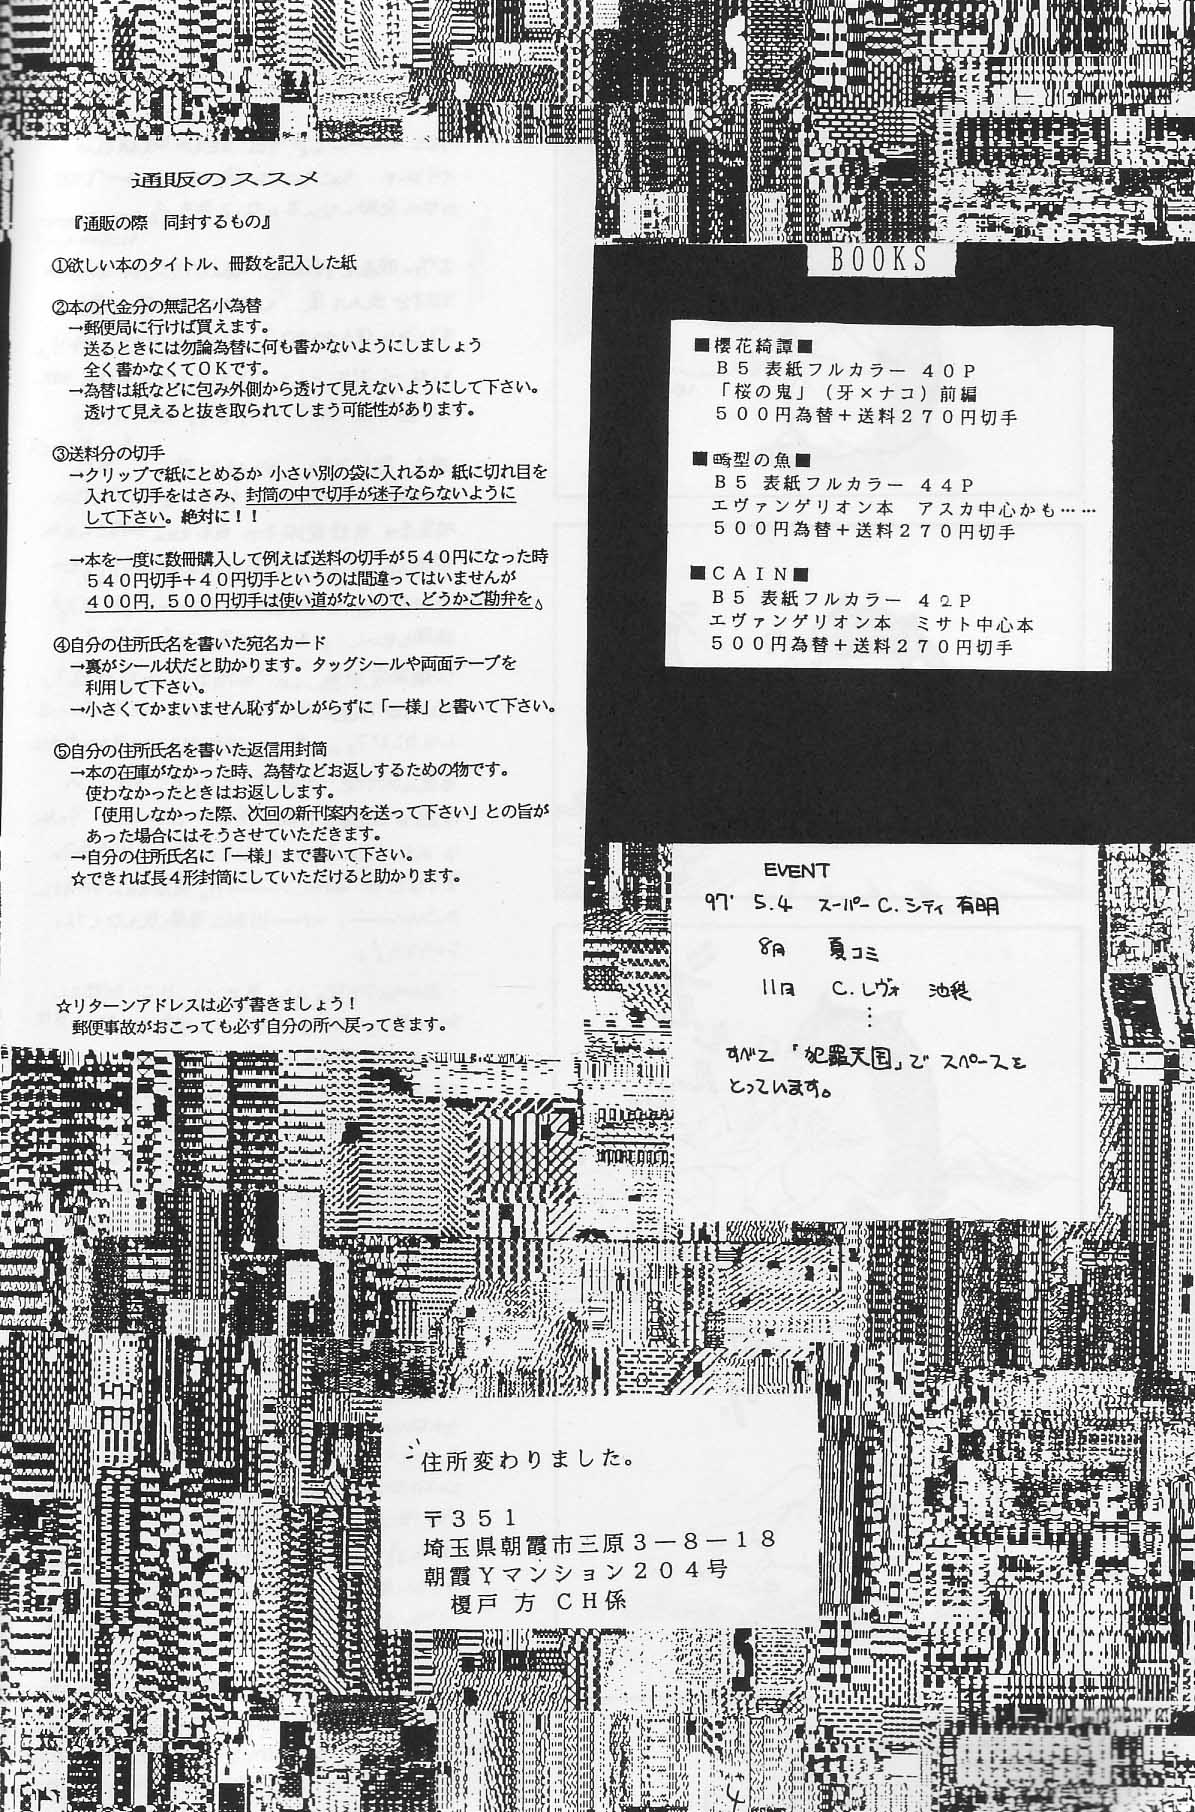 通販のススメ
『通販の際　同封するもの』
①欲しい本のタイトル、冊数を記入した紙
②本の代金分の無記名小為替
→郵便局に行けば買えます。
送るときには勿論為替に何も書かないようにしましょう
全く書かなくてＯＫです。
→為替は紙などに包み外側から透けて見えないようにして下さい。
透けて見えると抜き取られてしまう可能性があります。
③送料分の切手
→クリップで紙にとめるか 小さい別の袋に入れるか 紙に切れ目を
入れて切手をはさみ、封筒の中で切手が迷子ならないように
して下さい。絶対に！！
→本を一度に数冊購入して例えば送料の切手が５４０円になった時
５４０円切手＋４０円切手というのは間違ってはいませんが
４００円，５００円切手は使い道がないので、どうかご勘弁を。
④自分の住所氏名を書いた宛名カード
→裏がシール状だと助かります。タッグシールや両面テープを
利用して下さい。
→小さくてかまいません恥ずかしがらずに「―様」と書いて下さい。
⑤自分の住所氏名を書いた返信用封筒
→本の在庫がなかった時、為替などお返しするための物です。
使わなかったときはお返しします。
「使用しなかった際、次回の新刊案内を送って下さい」との旨が
あった場合にはそうさせていただきます。
→自分の住所氏名に「―様」まで書いて下さい。
☆できれば長４形封筒にしていただけると助かります。
☆リターンアドレスは必ず書きましょう！
郵便事故がおこっても必ず自分の所へ戻ってきます。
BOOKS
■櫻花綺譚■
Ｂ５ 表紙フルカラー ４０Ｐ
「桜の鬼」（牙×ナコ）前編
５００円為替＋送料２７０円切手
■畸型の魚■
Ｂ５ 表紙フルカラー ４４Ｐ
エヴァンゲリオン本　アスカ中心かも……
５００円為替＋送料２７０円切手
■ＣＡＩＮ■
Ｂ５ 表紙フルカラー ４２Ｐ
エヴァンゲリオン本　ミサト中心本
５００円為替＋送料２７０円切手
EVENT
97' 5.4 スーパーC.シティ 有明
8月 夏コミ
11月 C.レヴォ 池袋
⋮
すべて「犯羅天国」で スペースを
とっています。
住所変わりました。
〒３５１
埼玉県朝霞市三原３－８－１８
朝霞Ｙマンション２０４号
榎戸 方 ＣＨ係
4